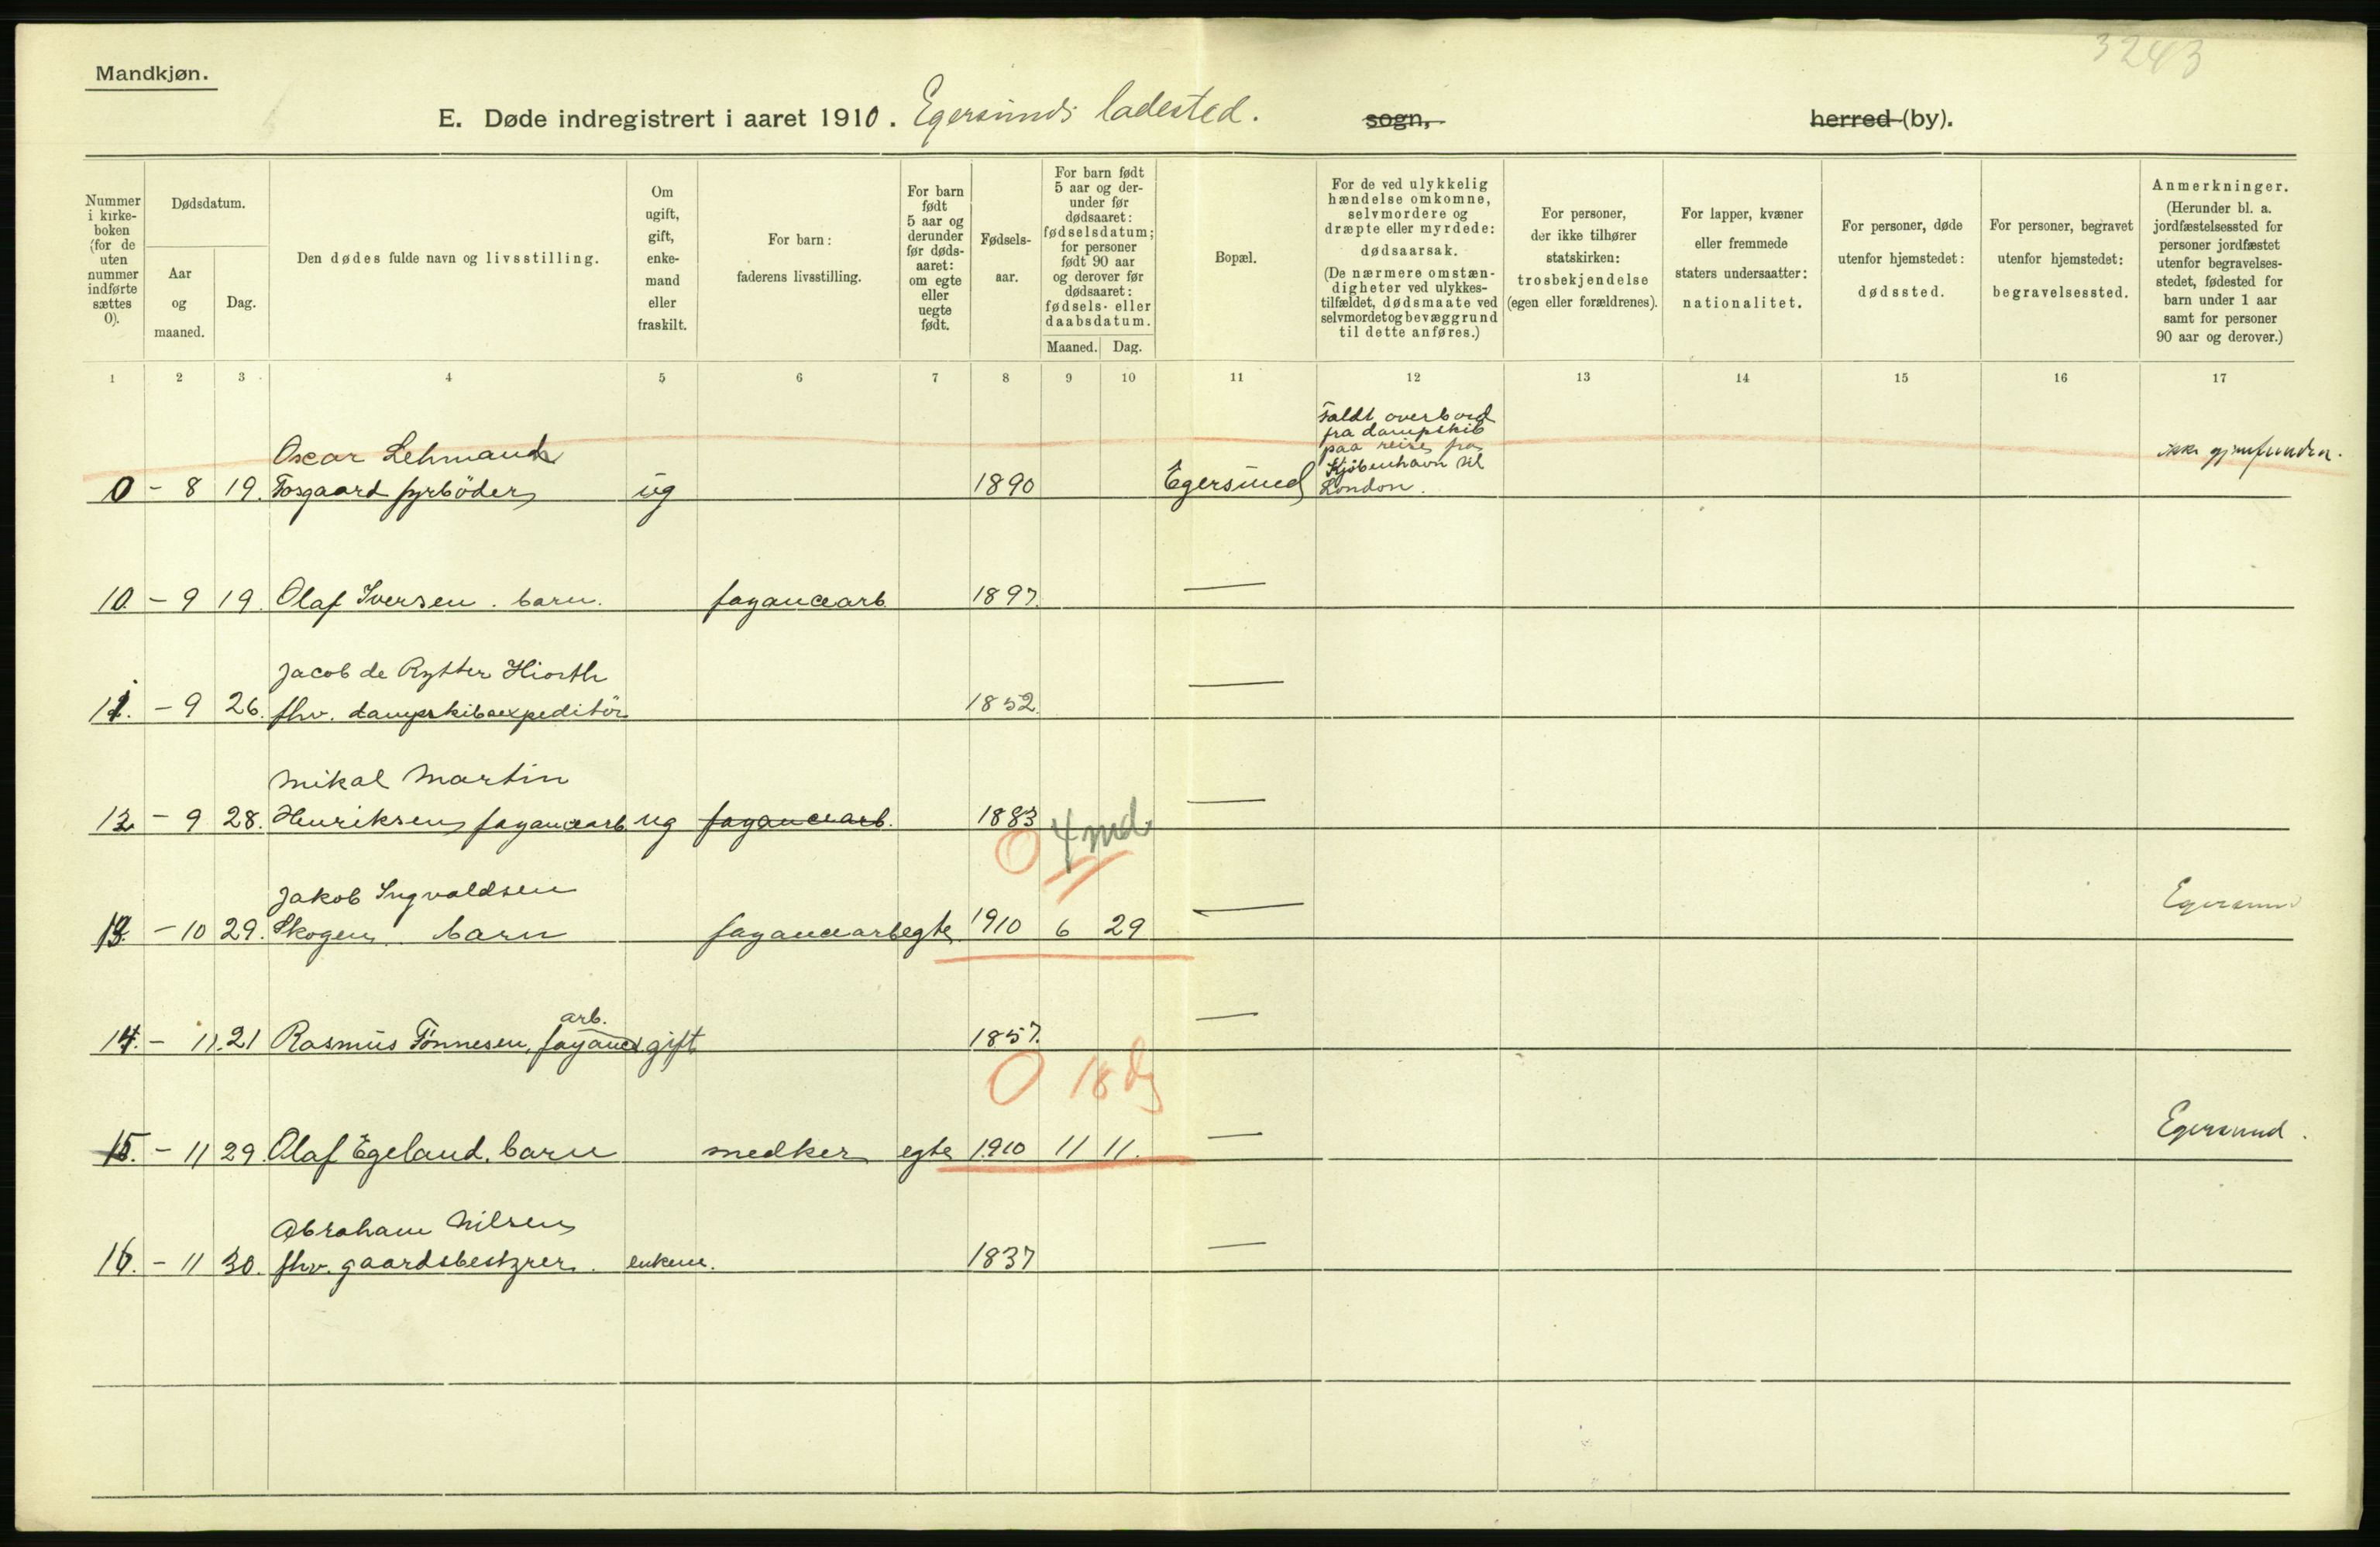 3243
Mandkjøn.
E. Døde indregistrert i aaret 1910. Egersunds ladested. sogn, herred (by).
Nummer i kirke- boken (for de uten nummer indførte sættes 0).
Dødsdatum.
Aar og maaned.
Dag.
Den dødes fulde navn og livsstilling.
Om ugift, gift, enke- mand eller fraskilt.
For barn: faderens livsstilling.
For barn født 5 aar og derunder før døds- aaret: om egte eller uegte født.
Fødsels- aar.
For barn født 5 aar og der- under før dødsaaret: fødselsdatum; for personer født 90 aar og derover før dødsaaret: fødsels- eller daabsdatum.
Maaned.
Dag.
Bopæl.
For de ved ulykkelig hændelse omkomne, selvmordere og dræpte eller myrdede: dødsaarsak. (De nærmere omstæn- digheter ved ulykkes- tilfældet, dødsmaate ved selvmordet og bevæggrund til dette anføres.)
For personer, der ikke tilhører statskirken: trosbekjendelse (egen eller forældrenes).
For lapper, kvæner eller fremmede staters undersaatter: nationalitet.
For personer, døde utenfor hjemstedet: dødssted.
For personer, begravet utenfor hjemstedet: begravelsessted.
Anmerkninger. (Herunder bl. a. jordfæstelsessted for personer jordfæstet utenfor begravelses- stedet, fødested for barn under 1 aar samt for personer 90 aar og derover.)
1 2 3 4 5 6 7 8 9 10 11 12 13 14 15 16 17
Faldt overbord
fra dampskib
paa reise fra
Kjöbenhavn til
London.
Oscar Lehmand
0 - 8 19. Fosgaard fyrböder ug 1890 Egersund ikke gjenfunden.
10. - 9 19. Olaf Iversen. barn. fayancearb. 1897. —
Jacob de Rytter Hiorth
11. - 9 26. fhv. dampskibsexpeditör 1852. —
Mikal Martin
12. - 9 28. Henriksen fayancearb. ug fayancearb. 1883 —
0 4 md.
Jakob Ingvaldsen
13. - 10 29. Skogen. barn fayancearb egte 1910 6 29 — Egersund
arb.
14. - 11. 21 Rasmus Tönnesen, fayance gift 1857. —
0 18 dg
15. - 11 29. Olaf Egeland. barn snedker egte 1910 11 11. — Egersund.
Abraham Nilsen
16. - 11 30. fhv. gaardsbestyrer. enkem. 1837 —